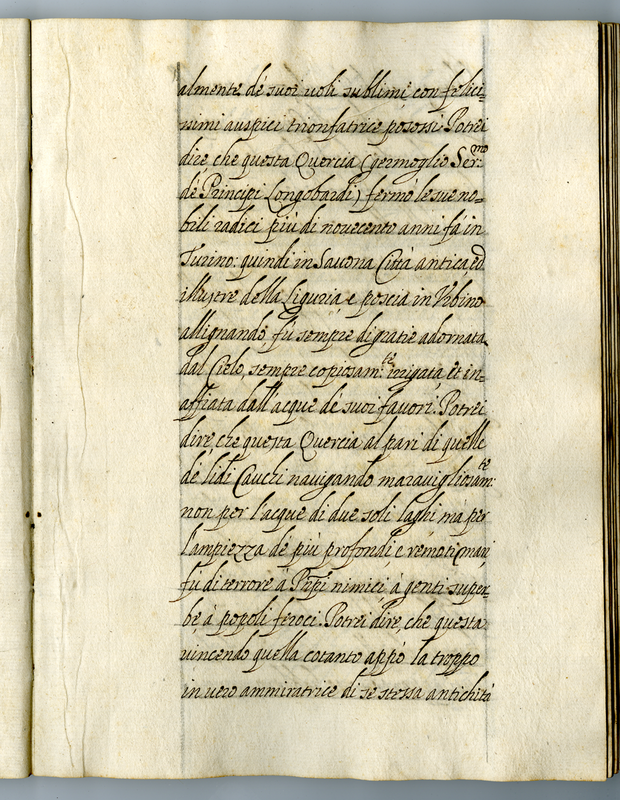 almente dé suoi uoli sublimi, con felici=
ssimi auspici trionfatrice posossi. Potrei
dire che questa Quercia (germoglio Ser:mo
dé Principi Longobardi) fermò le sue no=
bili radici più di novecento anni fà in
Turino: quindi in Sauona Città antica ed
illustre della Liguria, e poscia in Vrbino
allignando, fù sempre di gratie adornata
dal Cielo, sempre copiosam:te irrigata, et in=
affiata dall'acque dé suoi fauori. Potrei
dire, che questa Quercia al pari di quelle
dé lidi Cauchi nauigando marauigliosam:te
non per l'acque di due soli laghi mà per
l'ampiezza dé più profondi, e remoti mari
fù di terrore à Prpi nimici, à genti super=
be à popoli feroci. Potrei dire, che questa
uincendo quella cotanto appò la troppo
in uero ammiratrice di se stessa antichità